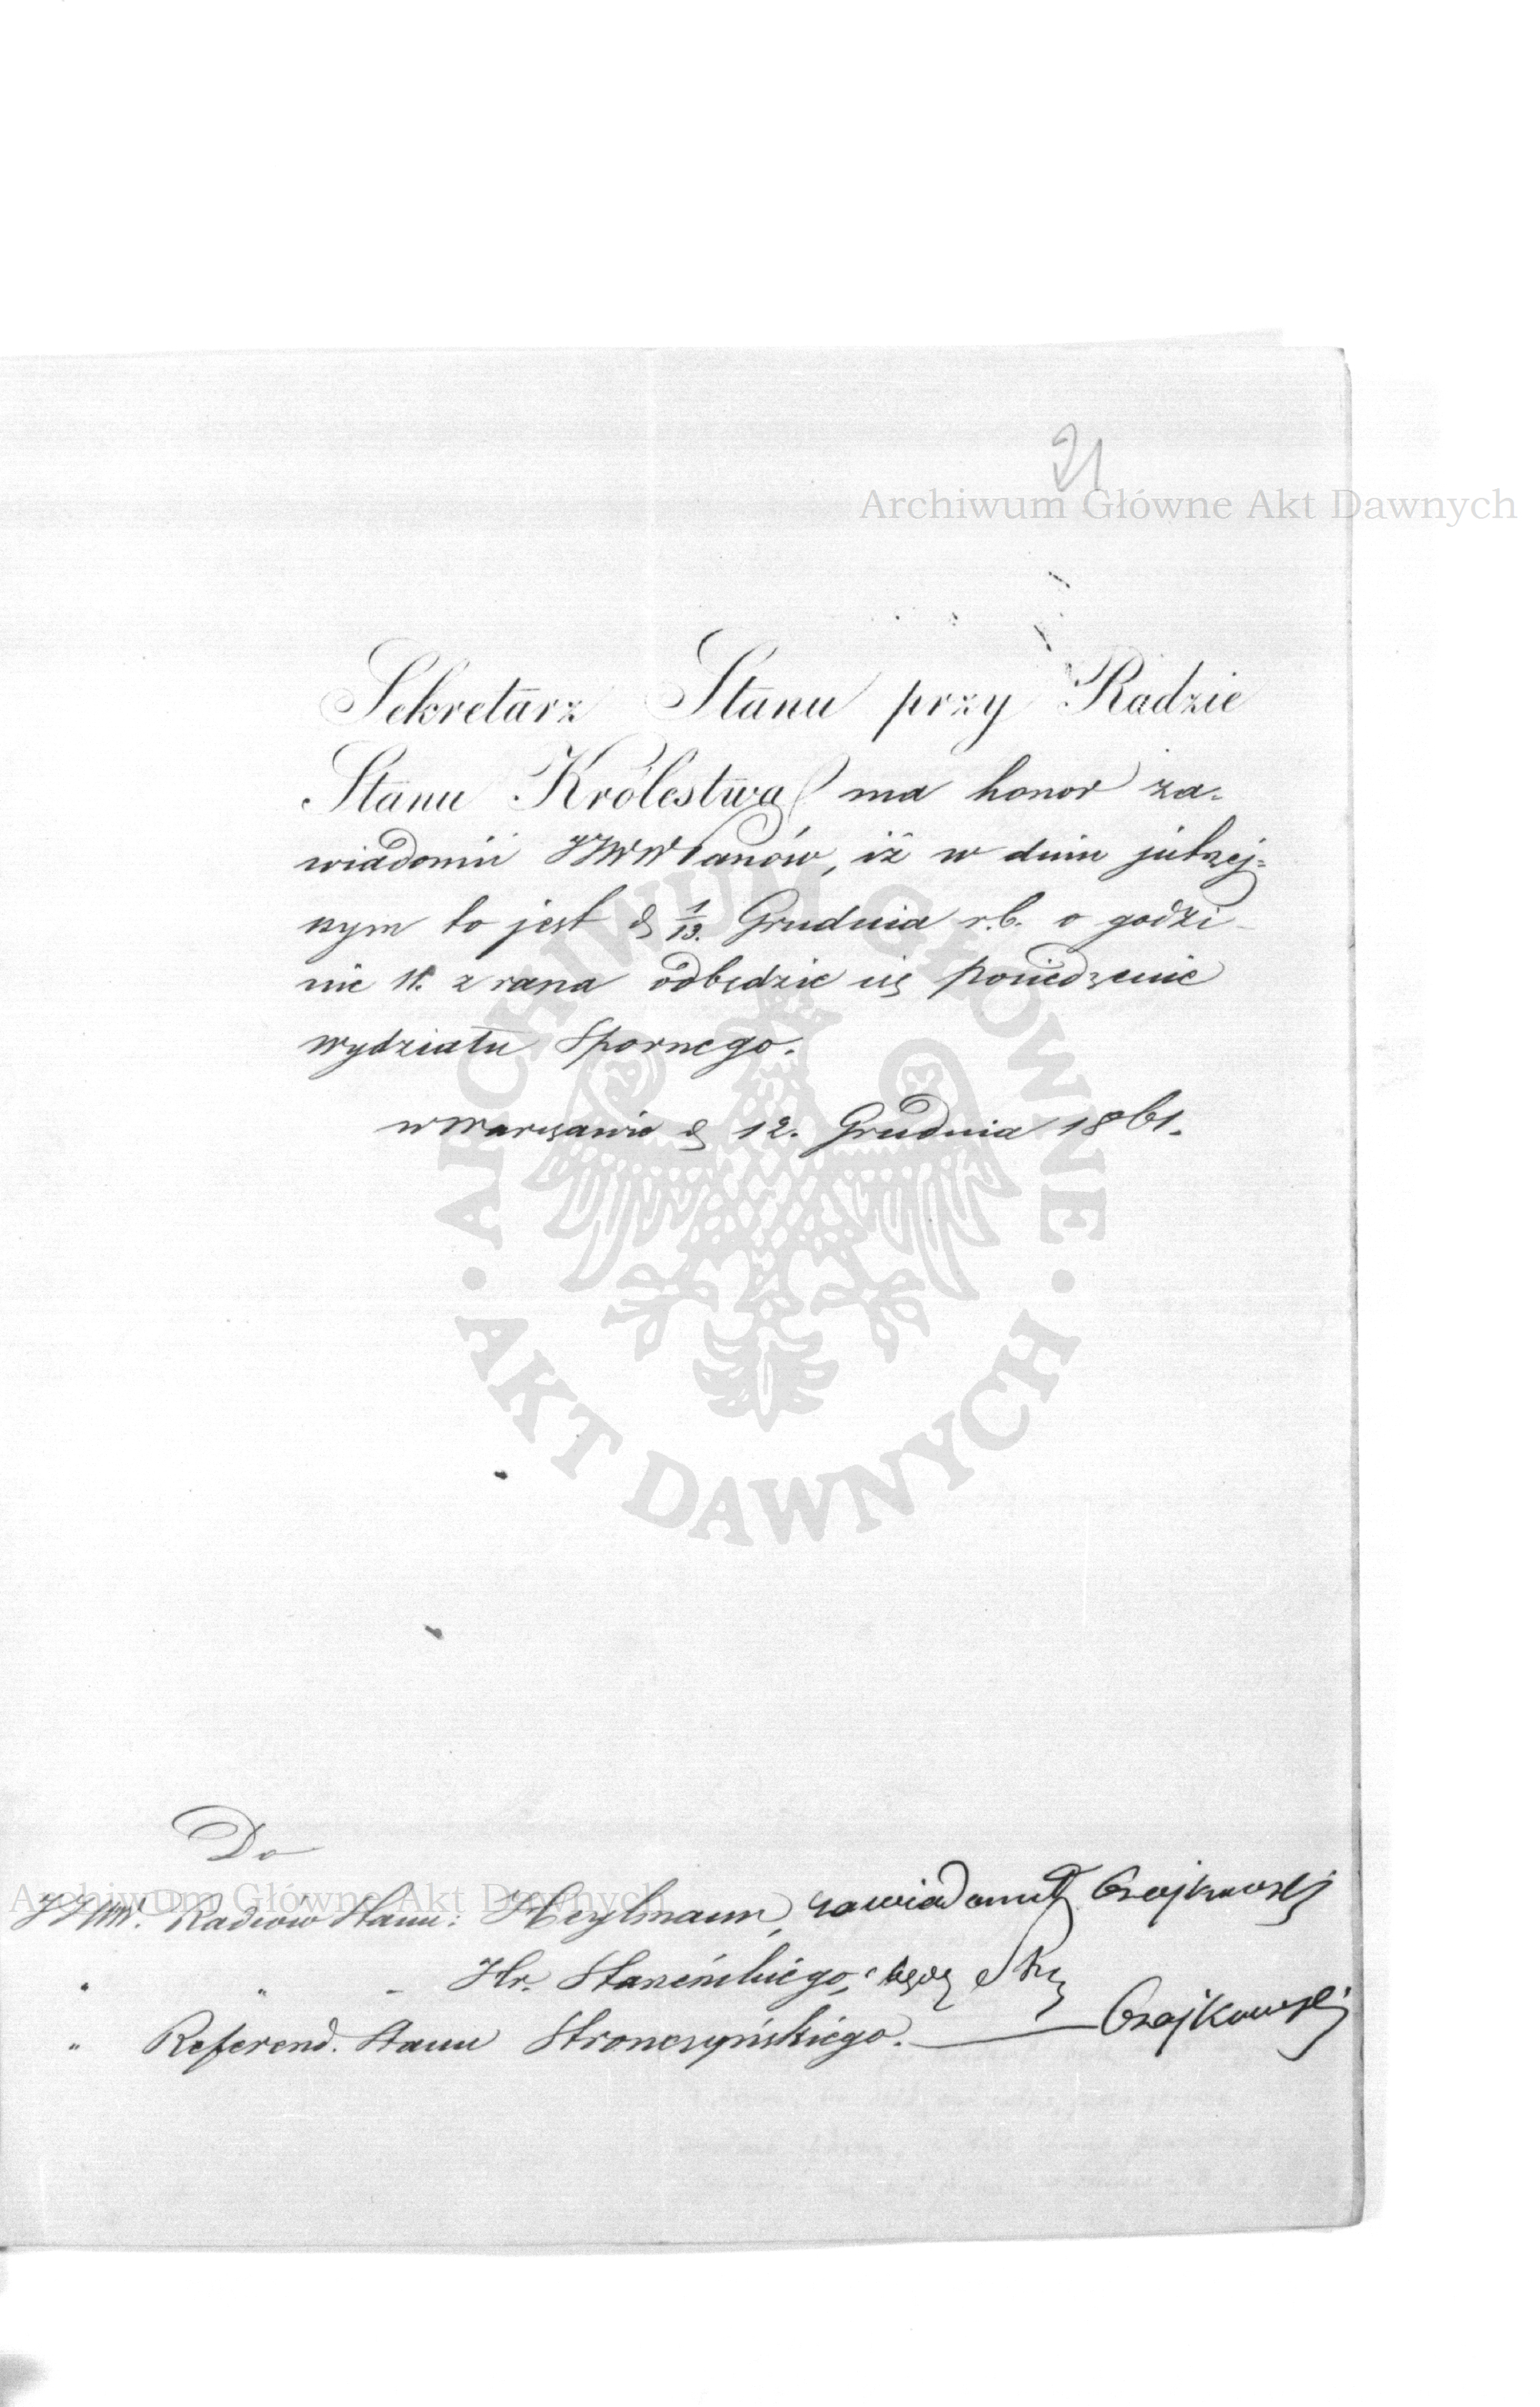 21
Archiwum Główne Akt Dawnych
Sekretarz Stanu przy Radzie
Stanu Królestwa ma honor za-
wiadomić JJWWPanów, iż w dniu jutrzej=
nym to jest d 1/13. Grudnia r.b. o godzi-
nie 11. z rana odbędzie się posiedzenie
wydziału Spornego.
w Warszawie d 12. Grudnia 1861.
ARCHIWUM GŁÓWNE
AKT DAWNYCH
Do
Archiwum Główne Akt Dawnych
JJWW. Radców Stanu: Heylmann, Czajkowski
" " " Hr.
" Referend. Stanu Stronczyńskiego. Czajkowski